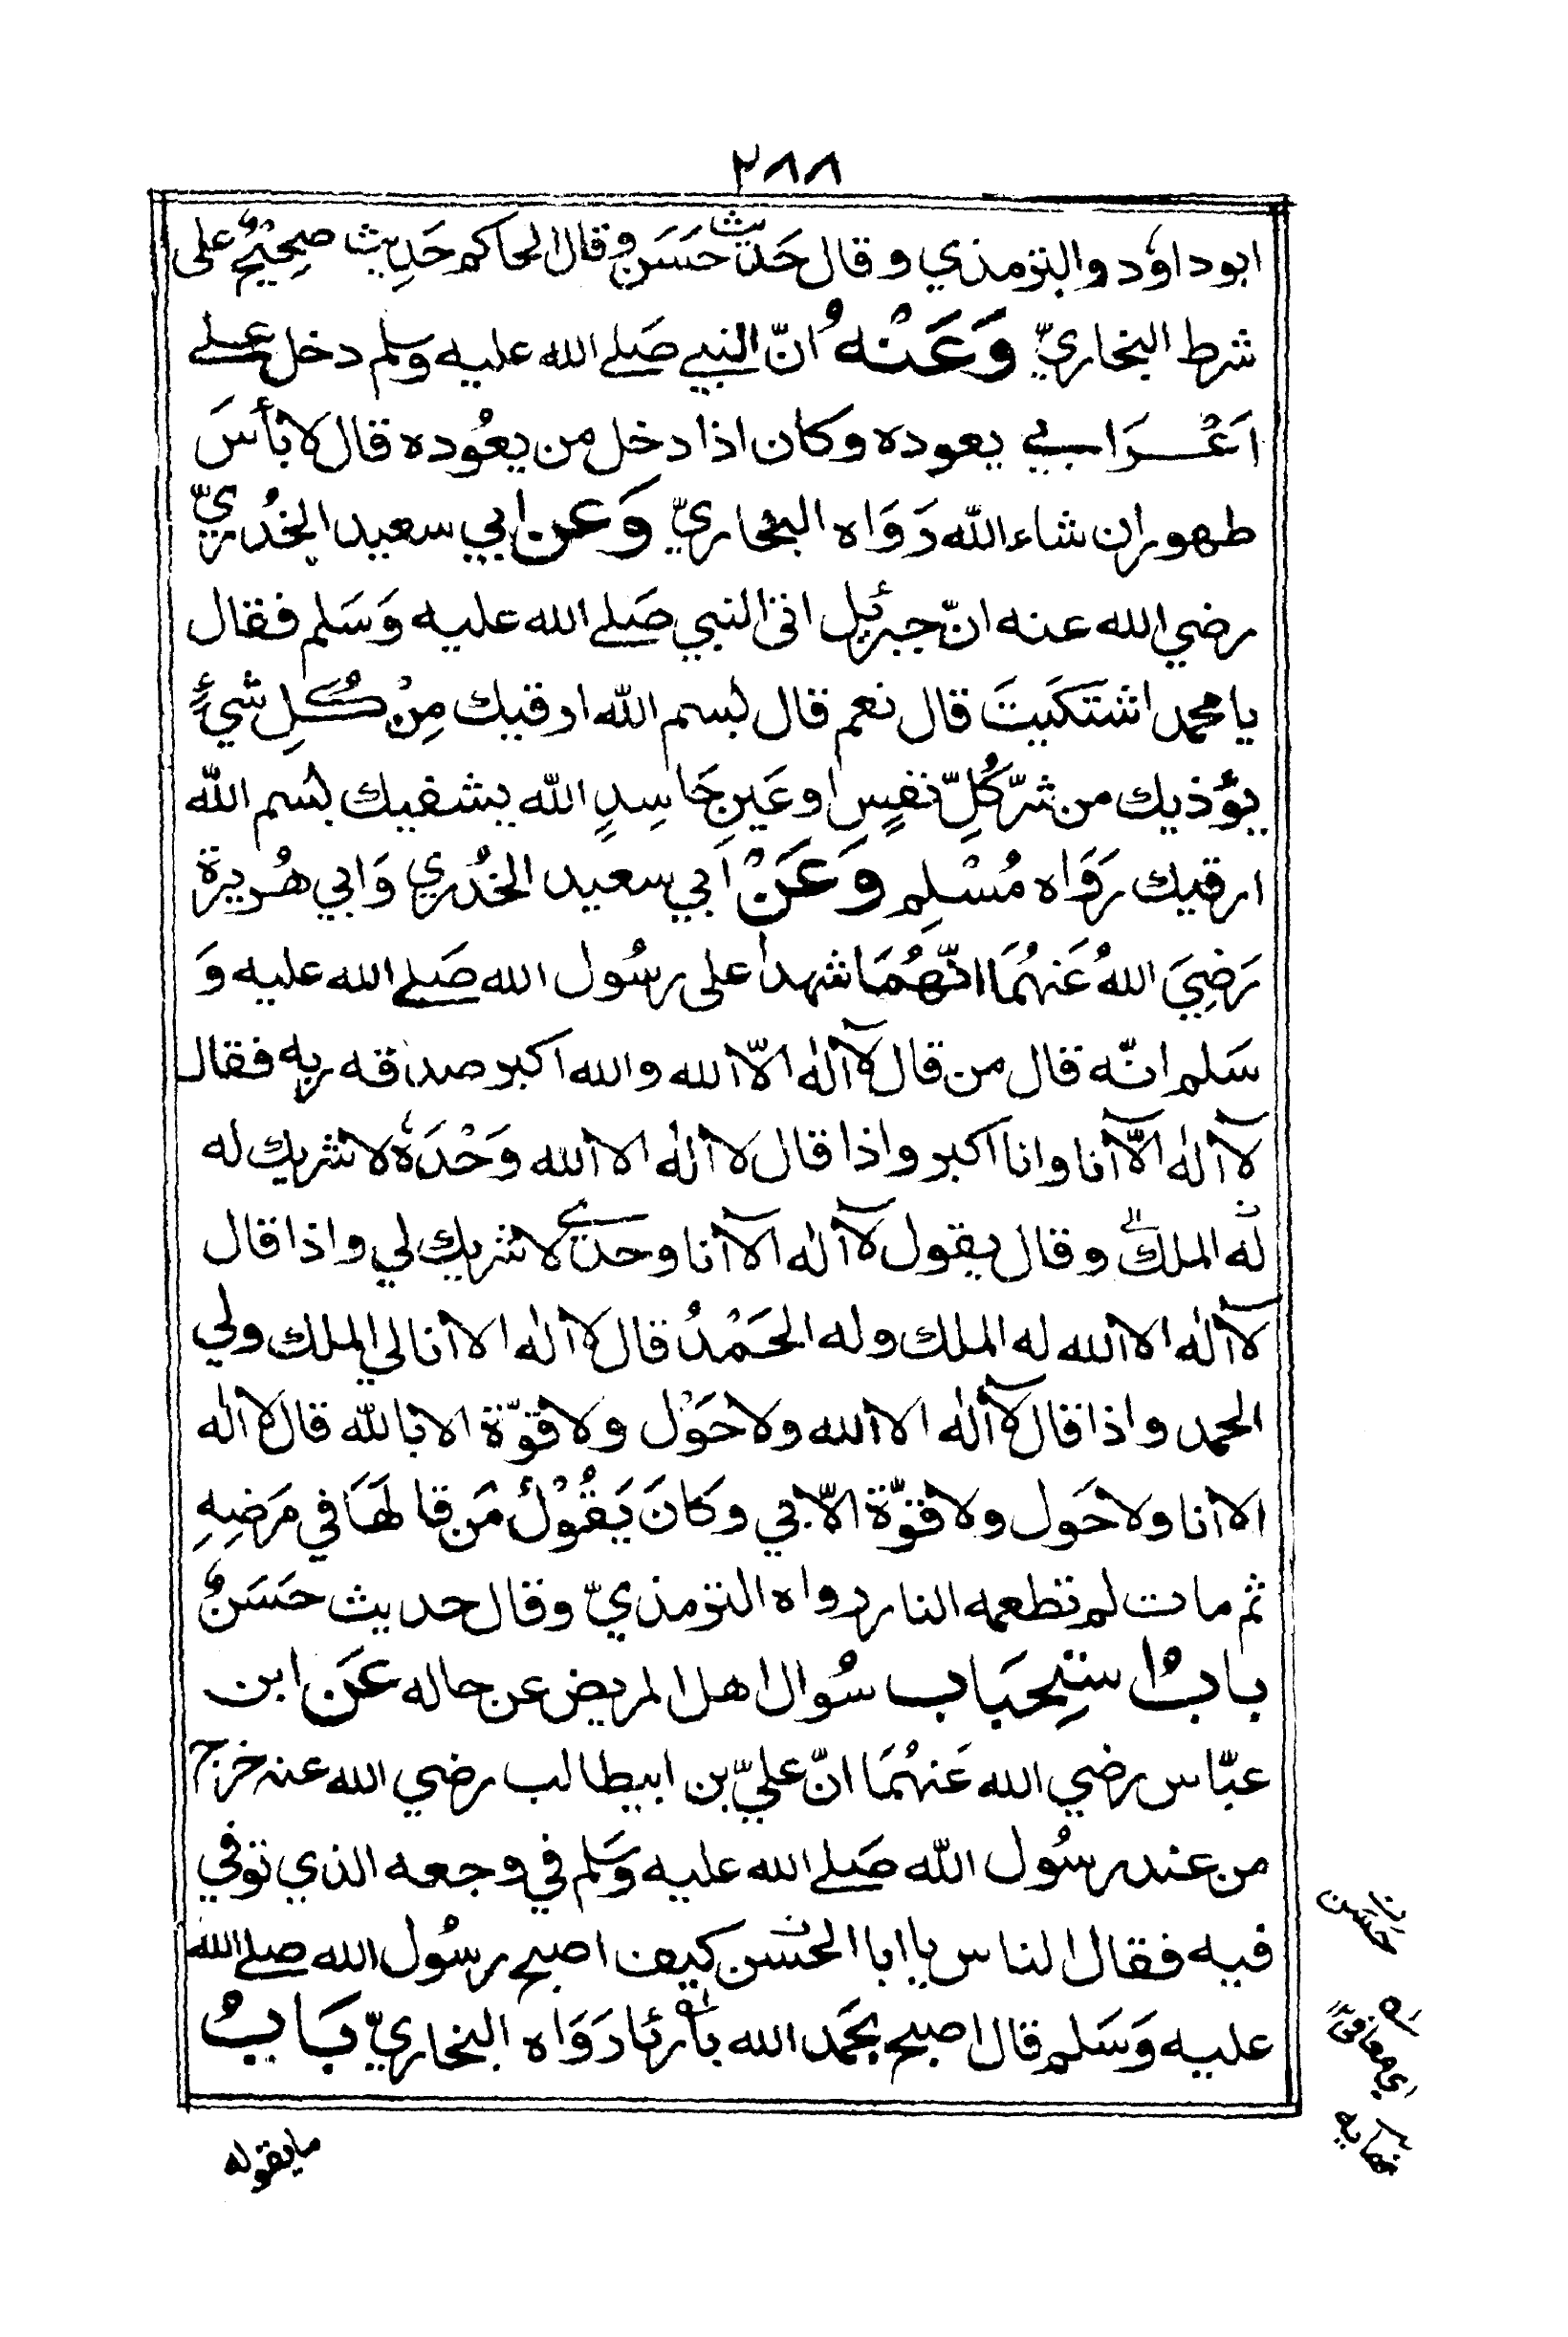 ٢٨٨
ابوداوٗد والترمذي وقال حَديث حسَنٌ وقال الحاكم حَدِيث صحِيْحٌ على
شرط البخاريّ وَعَنْهُ انّ النبي صَلے الله عليه وسلم دخل علے
اَعْرَابي يعوده وكان اذا دخل من يعُوده قال لا بأسَ
طهور ان شاء اللّه رَوَاه البخاريّ وَعن ابي سعيد الخُدريّ
رضي الله عنه انّ جبرئيل اتى النبي صَلے الله عليه وَسَلم فقال
يا محمد اشتَكَيتَ قال نعم قال بسم اللّه ارقيك مِنْ كُلِ شيءٍ
يؤذيك من شرّ كُلِّ نفسٍ او عَينِ حَاسِدٍ اللّه يشفيك بسم اللّه
ارقيك رَوَاه مُسْلِم وَعَنْ اَبي سعيد الخُدري وَابي هُريرة
رَضِيَ اللهُ عَنهُمَا انّهُمَا شهدا على رسُول الله صَلے الله عليه وَ
سَلم انّه قال من قال لآ الٰه الّا الله والله اكبر صدّقه ربه فقال
لآ الٰه الّآ انا وانا اكبر واذا قال لا الٰه الا الله وَحْدَهٗ لا شريك له
له الملك وقال يقول لآ الٰه الآ انا وحدي لا شريك لي واذا قال
لآ الٰه الا الله له الملك وله الحَمْدُ قال لا اله الا انا لي الملك ولي
الحمد واذا قال لآ الٰه الا الله ولا حَوْل ولا قوّة الا باللّه قال لا الٰه
الا انا ولا حَول ولا قوّة الّا بي وكانَ يَقُوْلُ مَن قالهَا في مَرَضِهِ
ثم مات لم تطعمه النار رواه الترمذيّ وقال حديث حسَنٌ
بابُ استِحبَاب سُوال اهل المريض عن حاله عَن ابن
عبّاس رضي الله عَنهُمَا انّ عليّ بن ابيطالب رضي الله عنه خرج
من عند رسُول اللّه صَلے الله عليه وسَلم في وجعه الذي توفي
فيه فقال الناس يا ابا الحسَن كيف اصبح رسُول الله صلے الله
عليه وَسَلم قال اصبح بحَمد الله بارئا رَوَاه البخاريّ بَابُ
حسَن
اي معافى
نهايه
ما يقوله